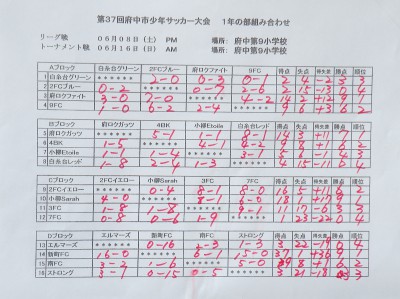 第37回府中市少年サッカー大会　1年の部組み合わせ
リーグ戦　06月08日（土）　PM　場所：府中第9小学校
トーナメント戦　06月16日（日）　AM　場所：府中第9小学校
Aブロック　白糸台グリーン　2FCブルー　府ロクファイト　9FC　得点　失点　得失差　勝点　順位
1　白糸台グリーン　******　2-0　0-3　0-1　2　4　-2　3　3
2　2FCブルー　0-2　******　0-7　2-6　2　15　-13　0　4
3　府ロクファイト　3-0　7-0　******　4-2　14　2　+12　9　1
4　9FC　1-0　6-2　2-4　******　9　6　+3　6　2
Bブロック　府ロクガッツ　4BK　小柳Etoile　白糸台レッド　得点　失点　得失差　勝点　順位
5　府ロクガッツ　******　5-1　1-1　8-1
6　4BK　1-5　******　4-1　4-2
7　小柳Etoile　1-1　1-4　******
8　白糸台レッド　1-8　2-4　1-3　******
Cブロック　2FCイエロー　小柳Sarah　3FC　7FC　得点　失点　得失差　勝点　順位
9　2FCイエロー　******　0-4　8-1　8-0　16　5　+11　6　2
10　小柳Sarah　4-0　******　8-1
11　3FC　1-8　1-8　******　9-1　11　17　-6　3　3
12　7FC　0-8　0-6　1-9　******　1　23　-22　0　4
Dブロック　エルマーズ　新町FC　南FC　ストロング　得点　失点　得失差　勝点　順位
13　エルマーズ　******　0-16　2-3　1-3　3　22　-19　0　4
14　新町FC　16-0　******　6-1　15-0　37　1　+36　9　1
15　南FC　3-2　1-6　******　5-0
16　ストロング　3-1　0-15　0-5　******　3